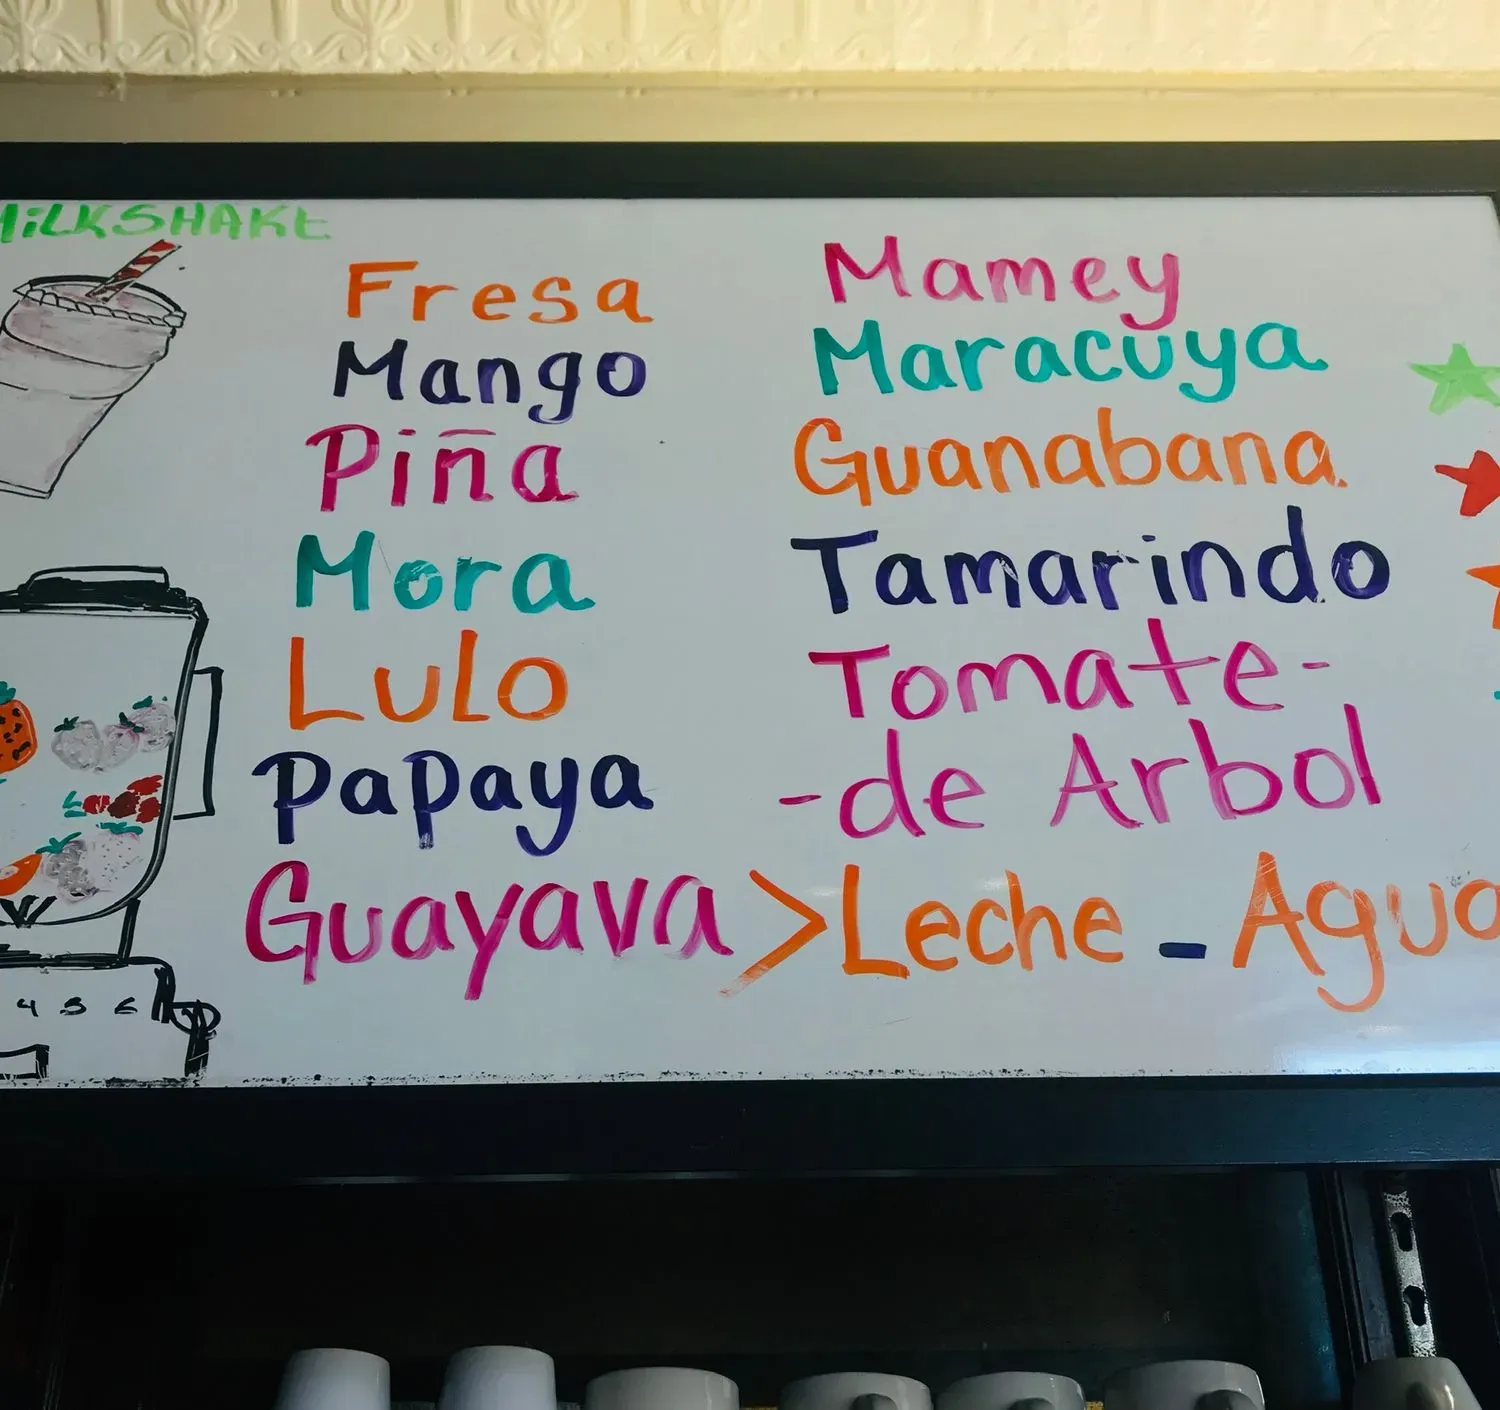 MILKSHAKE
Fresa
Mango
Piña
Mora
Lulo
Papaya
Guayava > Leche - Agua
Mamey
Maracuya
Guanabana
Tamarindo
Tomate-
-de Arbol
4 5 6